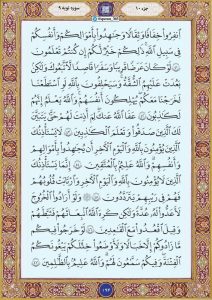 جزء ۱۰
سوره توبه ۹
ٱنفِرُوا۟ خِفَافًا وَثِقَالًا وَجَٰهِدُوا۟ بِأَمْوَٰلِكُمْ وَأَنفُسِكُمْ
فِى سَبِيلِ ٱللَّهِ ذَٰلِكُمْ خَيْرٌ لَّكُمْ إِن كُنتُمْ تَعْلَمُونَ
۝٤١ لَوْ كَانَ عَرَضًا قَرِيبًا وَسَفَرًا قَاصِدًا لَّٱتَّبَعُوكَ وَلَٰكِنۢ
بَعُدَتْ عَلَيْهِمُ ٱلشُّقَّةُ وَسَيَحْلِفُونَ بِٱللَّهِ لَوِ ٱسْتَطَعْنَا
لَخَرَجْنَا مَعَكُمْ يُهْلِكُونَ أَنفُسَهُمْ وَٱللَّهُ يَعْلَمُ إِنَّهُمْ
لَكَٰذِبُونَ ۝٤٢ عَفَا ٱللَّهُ عَنكَ لِمَ أَذِنتَ لَهُمْ حَتَّىٰ يَتَبَيَّنَ
لَكَ ٱلَّذِينَ صَدَقُوا۟ وَتَعْلَمَ ٱلْكَٰذِبِينَ ۝٤٣ لَا يَسْتَـْٔذِنُكَ
ٱلَّذِينَ يُؤْمِنُونَ بِٱللَّهِ وَٱلْيَوْمِ ٱلْءَاخِرِ أَن يُجَٰهِدُوا۟ بِأَمْوَٰلِهِمْ
وَأَنفُسِهِمْ وَٱللَّهُ عَلِيمٌۢ بِٱلْمُتَّقِينَ ۝٤٤ إِنَّمَا يَسْتَـْٔذِنُكَ
ٱلَّذِينَ لَا يُؤْمِنُونَ بِٱللَّهِ وَٱلْيَوْمِ ٱلْءَاخِرِ وَٱرْتَابَتْ قُلُوبُهُمْ
فَهُمْ فِى رَيْبِهِمْ يَتَرَدَّدُونَ ۝٤٥ وَلَوْ أَرَادُوا۟ ٱلْخُرُوجَ
لَأَعَدُّوا۟ لَهُۥ عُدَّةً وَلَٰكِن كَرِهَ ٱللَّهُ ٱنۢبِعَاثَهُمْ فَثَبَّطَهُمْ
وَقِيلَ ٱقْعُدُوا۟ مَعَ ٱلْقَٰعِدِينَ ۝٤٦ لَوْ خَرَجُوا۟ فِيكُم
مَّا زَادُوكُمْ إِلَّا خَبَالًا وَلَأَوْضَعُوا۟ خِلَٰلَكُمْ يَبْغُونَكُمُ
ٱلْفِتْنَةَ وَفِيكُمْ سَمَّٰعُونَ لَهُمْ وَٱللَّهُ عَلِيمٌۢ بِٱلظَّٰلِمِينَ ۝٤٧